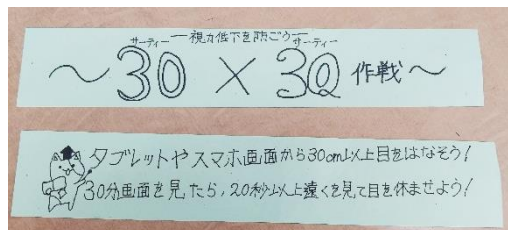 ―視力低下を防ごう―
サーティー サーティー
～30×30作戦～
タブレットやスマホ画面から30cm以上目をはなそう！
30分画面を見たら、20秒以上遠くを見て目を休ませよう！